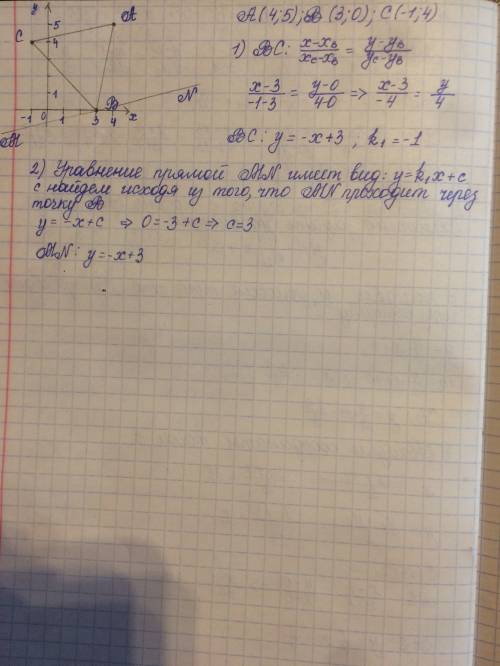 y
5
A
C
4
1
B
N
-1 0 1 3 4 x
M
A(4;5); B(3;0); C(-1;4)
1) BC: (x-x_B)/(x_C-x_B) = (y-y_B)/(y_C-y_B)
(x-3)/(-1-3) = (y-0)/(4-0) => (x-3)/(-4) = y/4
BC: y = -x+3 ; k₁ = -1
2) Уравнение прямой MN имеет вид: y=k₁x+c
c найдем исходя из того, что MN проходит через
точку B
y = -x+c => 0=-3+c => c=3
MN: y=-x+3